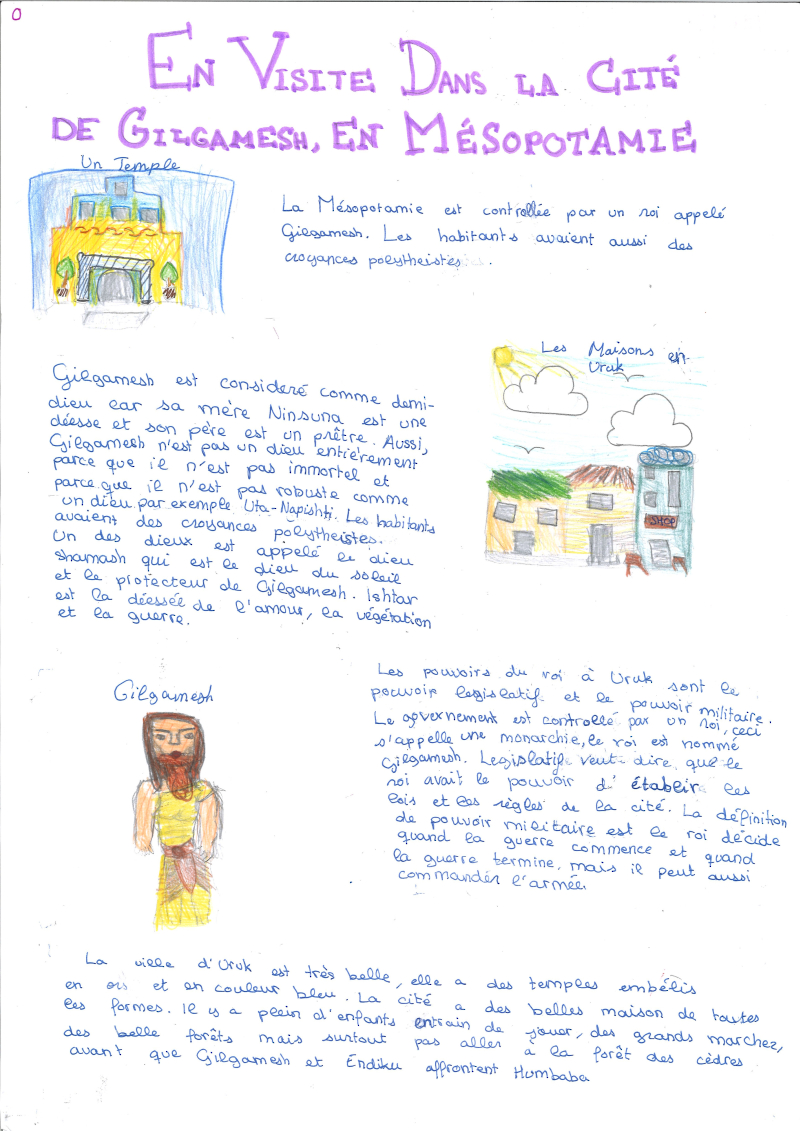 0
En Visite Dans la Cité
de Gilgamesh, en Mésopotamie
Un Temple
La Mésopotamie est controllée par un roi appelé
Gilgamesh. Les habitants avaient aussi des
croyances polytheistes.
Les Maisons en
Uruk
SHOP
Gilgamesh est consideré comme demi-
dieu car sa mère Ninsuna est une
déesse et son père est un prêtre. Aussi,
Gilgamesh n'est pas un dieu entièrement
parce que il n'est pas immortel et
parce que il n'est pas robuste comme
un dieu par exemple Uta-Napishti. Les habitants
avaient des croyances polytheistes.
Un des dieux est appelé le dieu
shamash qui est le dieu du soleil
et le protecteur de Gilgamesh. Ishtar
est la déessée de l'amour, la végétation
et la guerre.
Gilgamesh
Les pouvoirs du roi à Uruk sont le
pouvoir legislatif et le pouvoir militaire.
Le governement est controllé par un roi, ceci
s'appelle une monarchie, le roi est nommé
Gilgamesh. Legislatif veut dire que le
roi avait le pouvoir d'établir les
lois et les règles de la cité. La définition
de pouvoir militaire est le roi décide
quand la guerre commence et quand
la guerre termine, mais il peut aussi
commander l'armée.
La ville d'Uruk est très belle, elle a des temples embélis
en ors et en couleur bleu. La cité a des belles maison de toutes
les formes. Il y a plein d'enfants entrain de jouer, des grands marchez,
des belle forêts mais surtout pas aller à la forêt des cèdres
avant que Gilgamesh et Endiku affrontent Humbaba